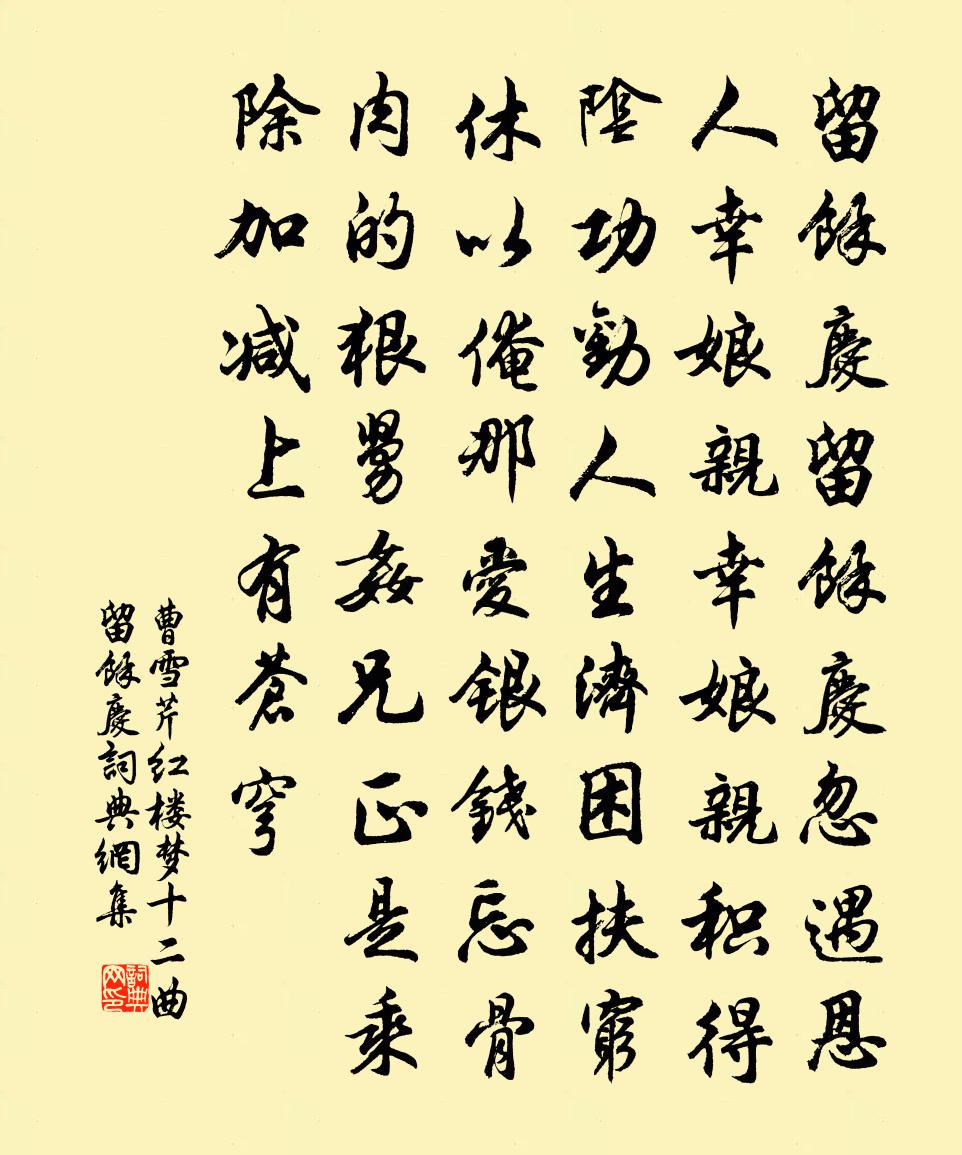 留餘慶留餘慶忽遇恩
人幸娘親幸娘親积得
陰功勸人生濟困扶窮
休以俺那愛銀錢忘骨
肉的狠舅姦兄正是乘
除加减上有蒼穹
曹雪芹红楼梦十二曲
留餘慶詞典網集
詞典
网印